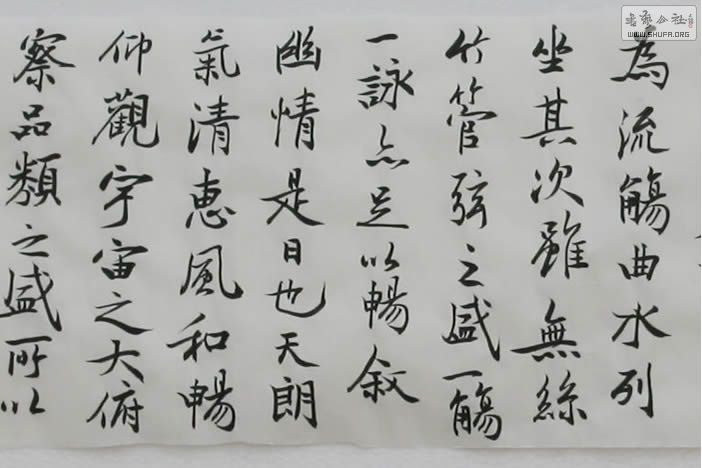 為流觴曲水列
坐其次雖無絲
竹管弦之盛一觴
一詠亦足以暢敘
幽情是日也天朗
氣清惠風和暢
仰觀宇宙之大俯
察品類之盛所以
書藝公社
WWW.SHUFA.ORG